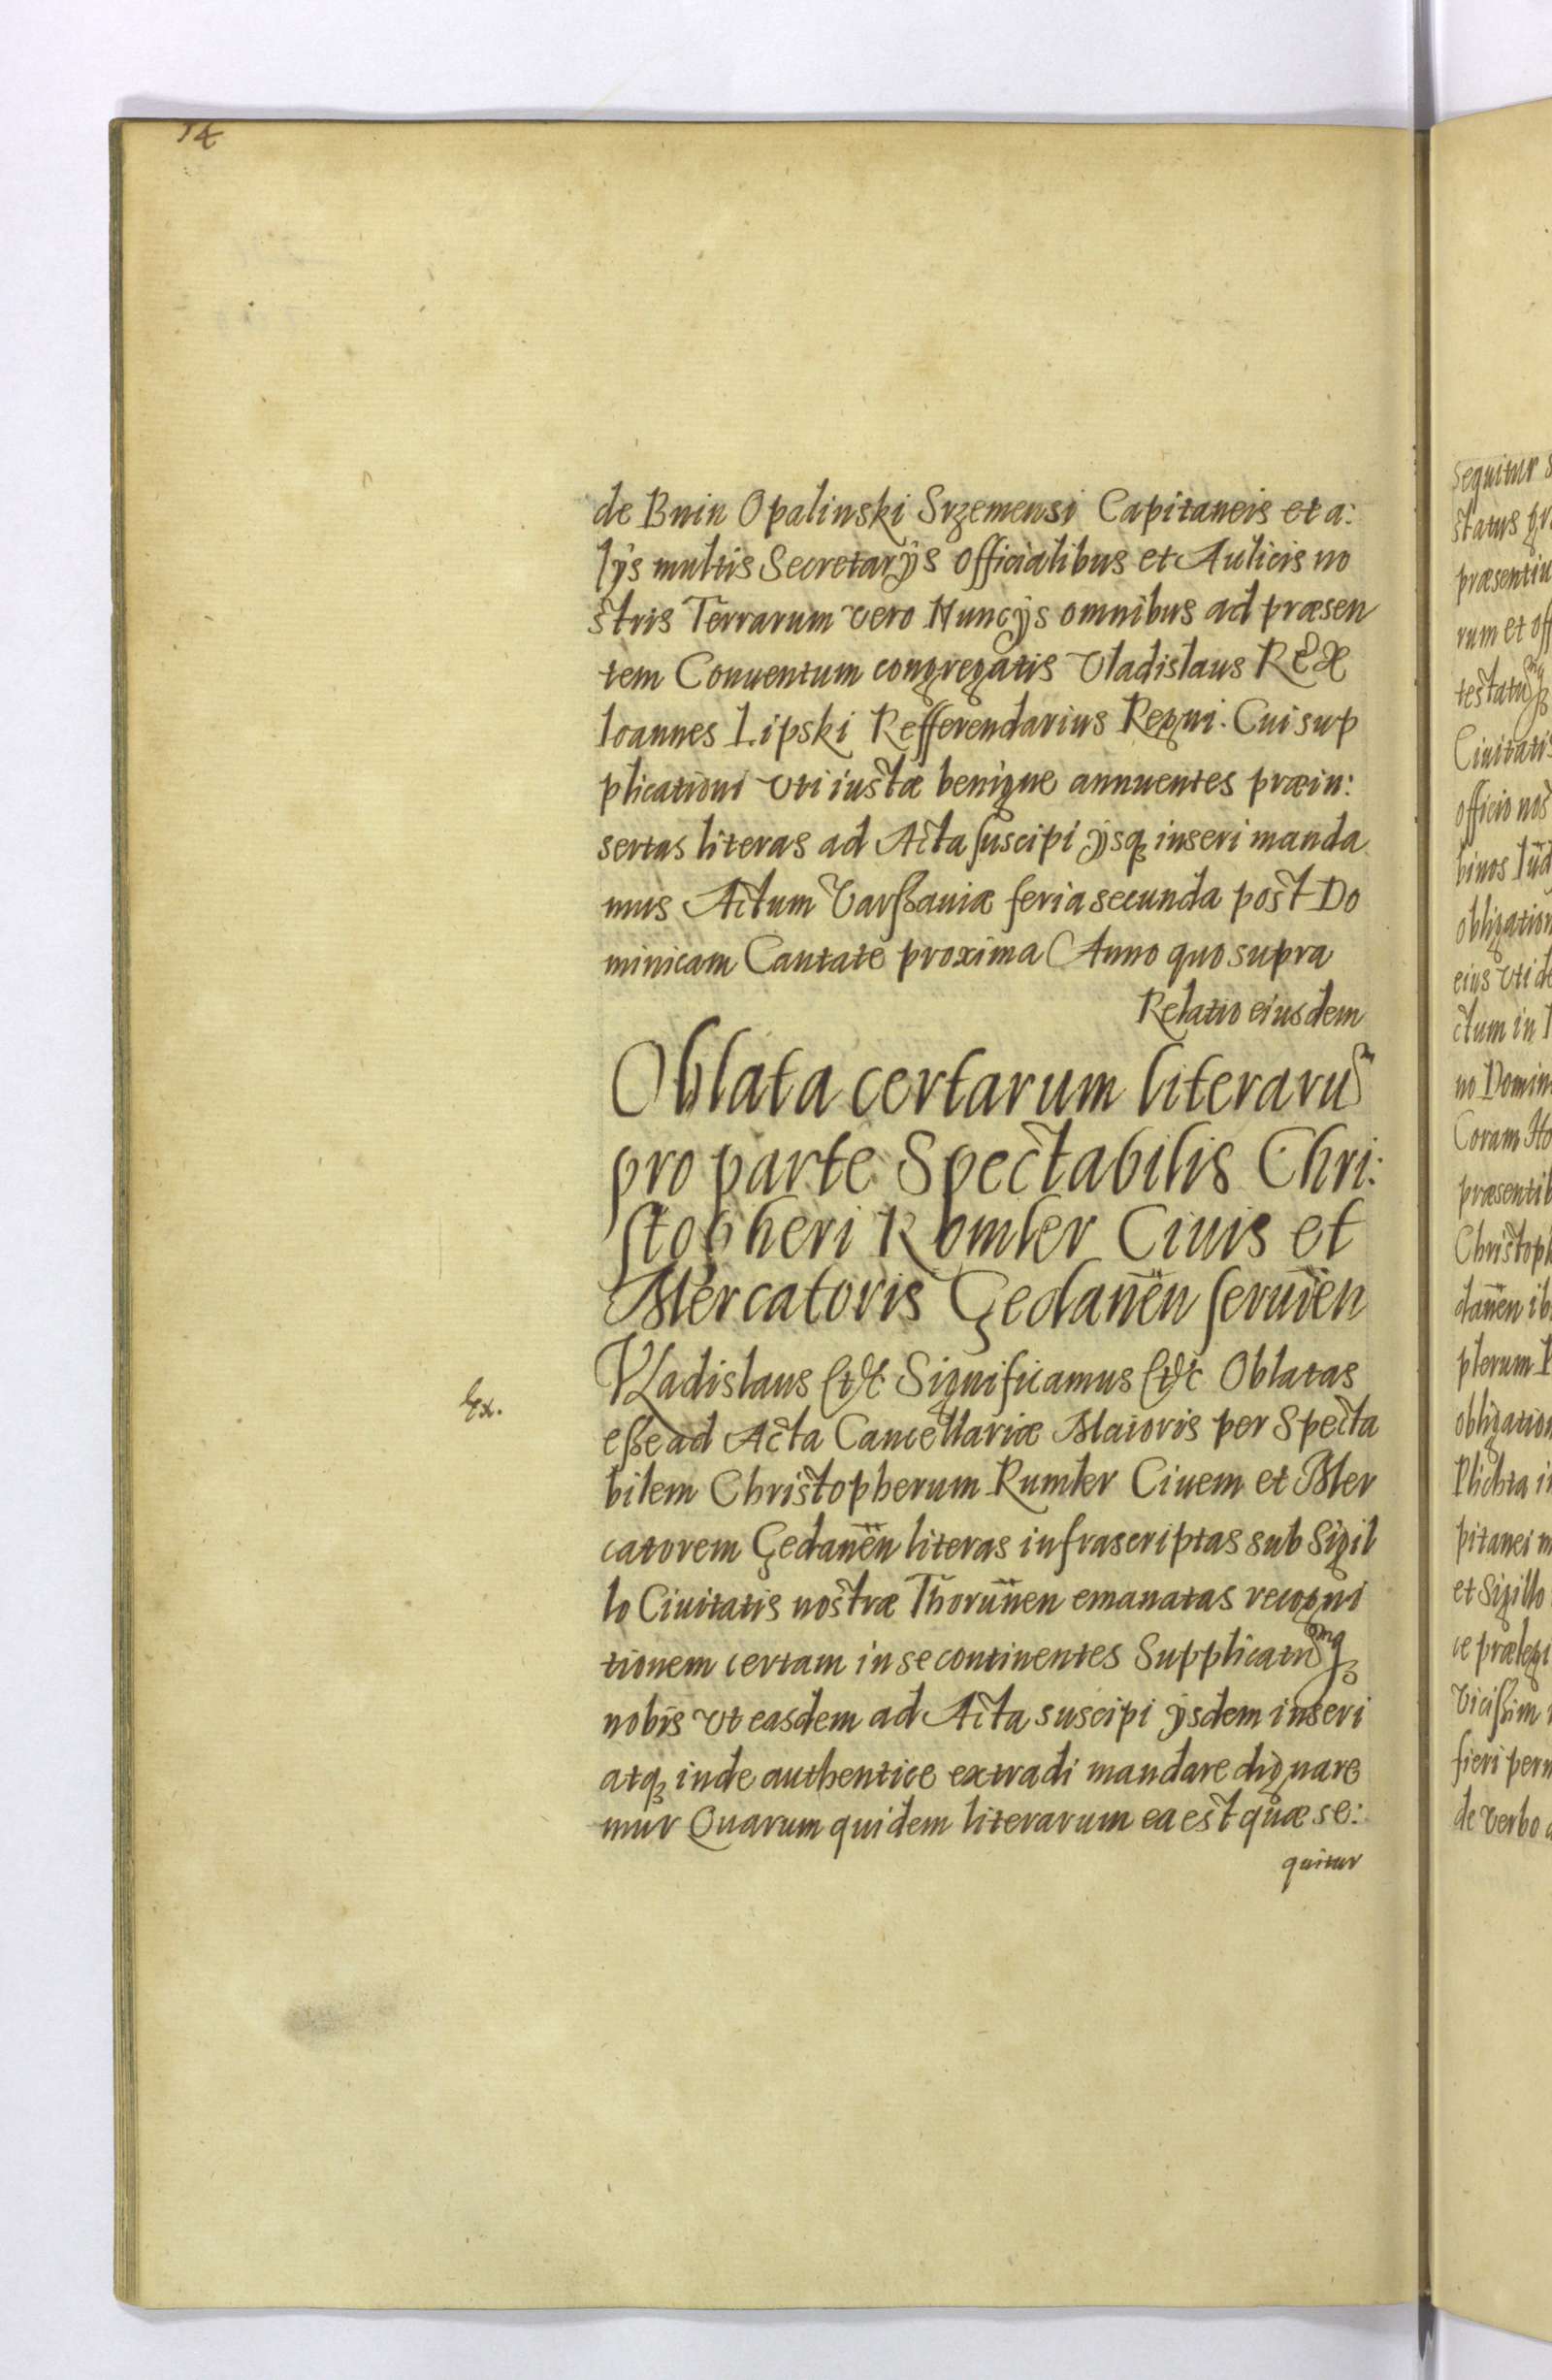 14
de Bnin Opalinski Srzemensi Capitaneis et a:
lÿs multis Secretarÿs officialibus et Aulicis no
stris Terrarum vero Nuncÿs omnibus ad præsen
tem Conuentum congregatis Vladislaus REX
Ioannes Lipski Refferendarius Regni. Cui sup
plicationi vti iustæ benigne annuentes præin:
sertas literas ad Acta suscipi ÿsq inseri manda
mus Actum Varßauiæ feria secunda post Do
minicam Cantate proxima Anno quo supra
Relatio eiusdem
Oblata certarum literarum
pro parte Spectabilis Chri:
stopheri Romler Ciuis et
Mercatoris Gedanen seruien
Ex.
Vladislaus etc Significamus etc Oblatas
eße ad Acta Cancellariæ Maioris per Specta
bilem Christopherum Rumler Ciuem et Mer
catorem Gedanen literas infrascriptas sub Sigil
lo Ciuitatis nostræ Thorunen emanatas recogni
tionem certam in se continentes Supplicatumq
nobis vt easdem ad Acta suscipi ÿsdem inseri
atq inde authentice extradi mandare dignare
mur Quarum quidem literarum ea est quæ se:
quitur
sequitur s
status gr
præsentiu
rum et off
testatumq
Ciuitatis
officio nos
binos Iud
obligation
eius vti de
ctum in
no Domin
Coram
præsentib
Christoph
danen ib
plerum
obligation
Plichta in
pitanei m
et Sigillo
ce prælegi
vicißim
fieri perm
de verbo